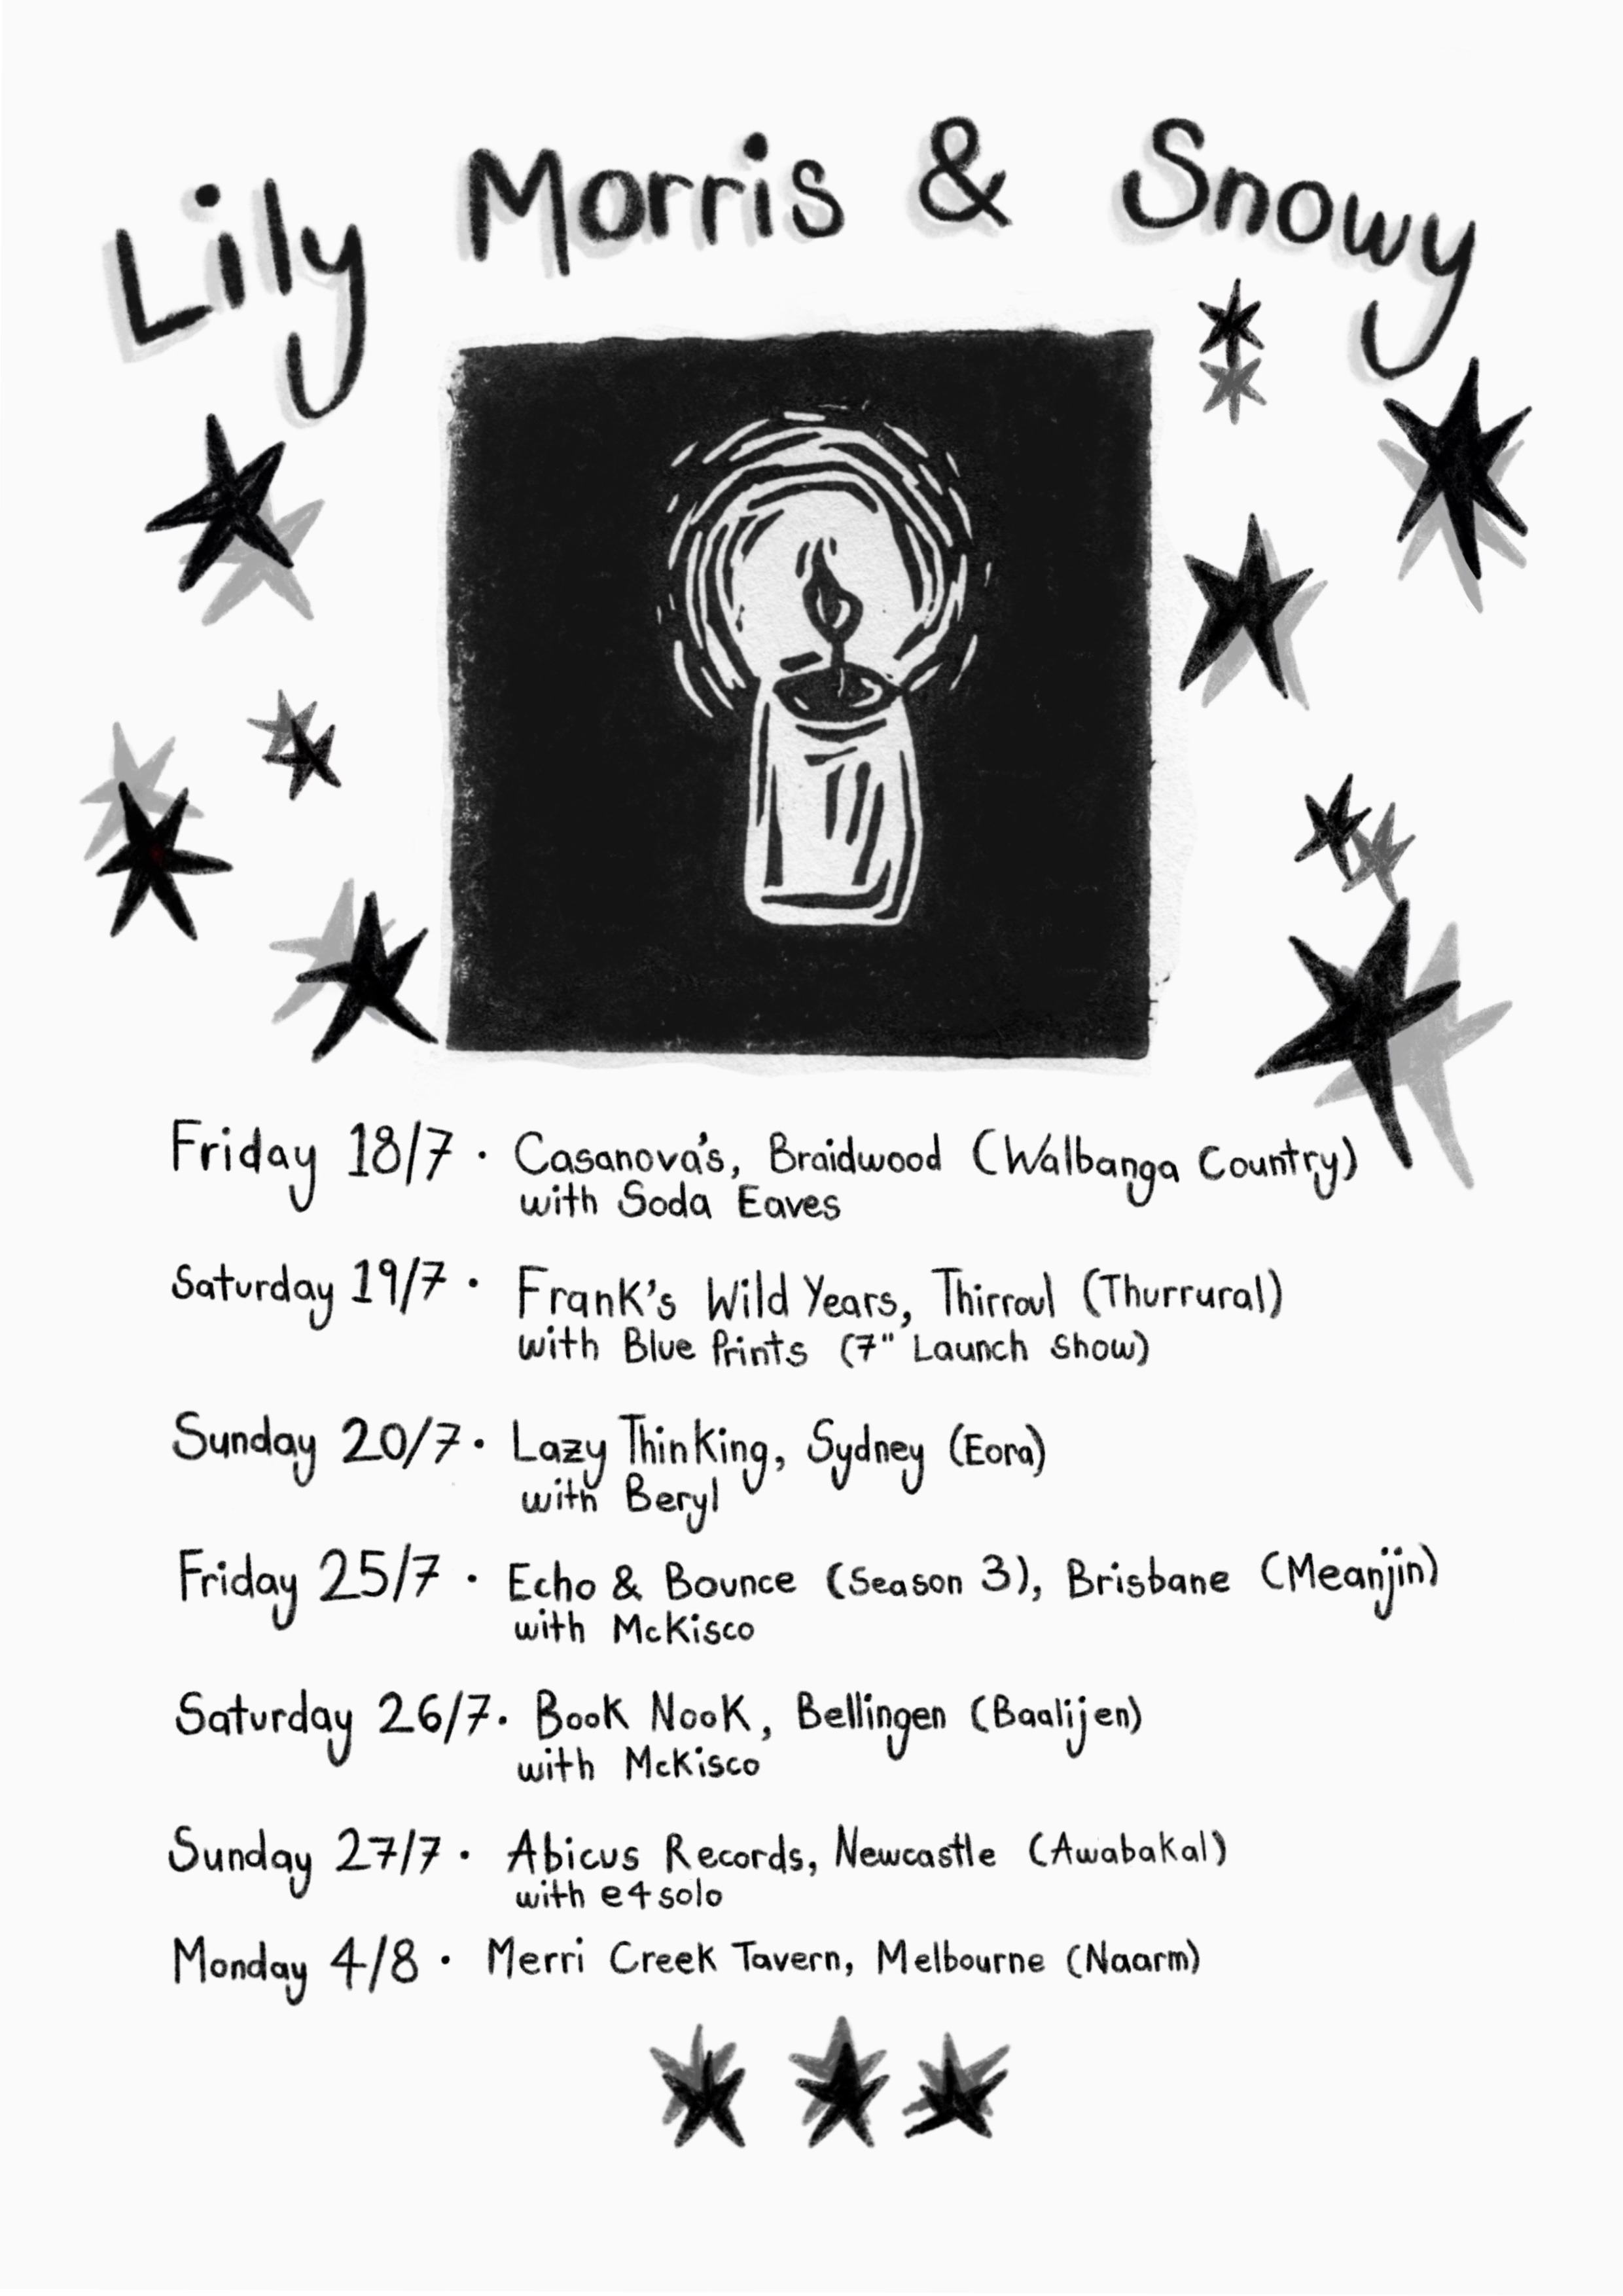 Lily Morris & Snowy
Friday 18/7 · Casanova's, Braidwood (Walbanga Country)
with Soda Eaves
Saturday 19/7 · Frank's Wild Years, Thirroul (Thurrural)
with Blue Prints (7" Launch Show)
Sunday 20/7 · Lazy Thinking, Sydney (Eora)
with Beryl
Friday 25/7 · Echo & Bounce (Season 3), Brisbane (Meanjin)
with McKisco
Saturday 26/7 · Book Nook, Bellingen (Baalijen)
with McKisco
Sunday 27/7 · Abicus Records, Newcastle (Awabakal)
with e4solo
Monday 4/8 · Merri Creek Tavern, Melbourne (Naarm)